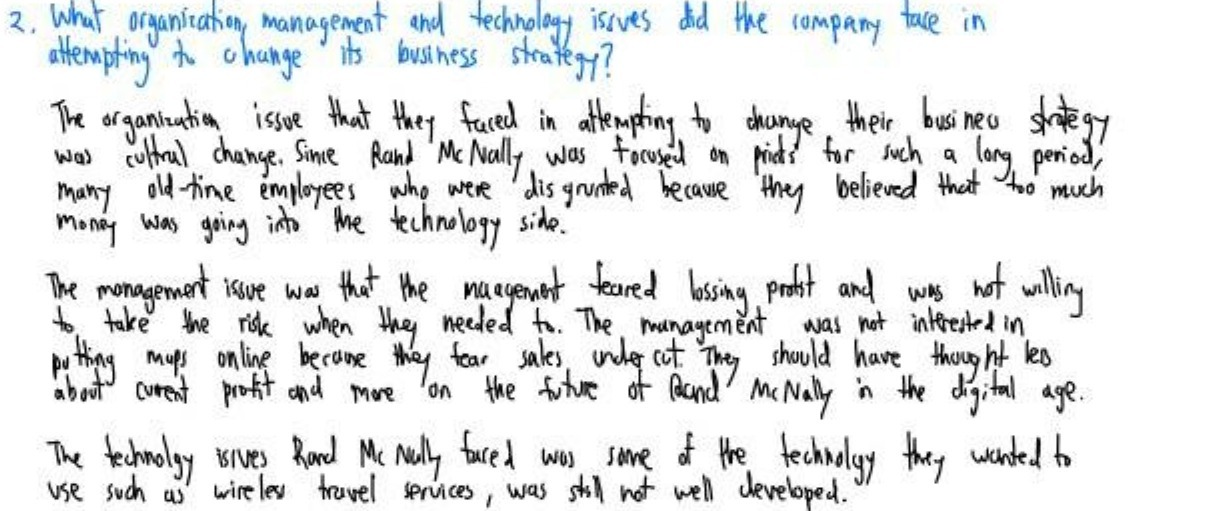 2. What organization, management and technology issves did the company face in
attempting to change its business strategy?
The organization issue that they faced in attempting to change their busines strategy
was cultral change. Since Rand McNally was focused on prints for such a long period,
many old-time employees who were disgrunted because they believed that too much
money was going into the technology side.
The management issue was that the maagement feared lossing profit and was not willing
to take the risk when they needed to. The management was not interested in
putting maps online because they fear sales under cut. They should have thought less
about current profit and more on the future of Rand McNally in the digital age.
The technolgy issves Rand McNally faced was some of the technolgy they wanted to
use such as wireless travel services, was still not well developed.